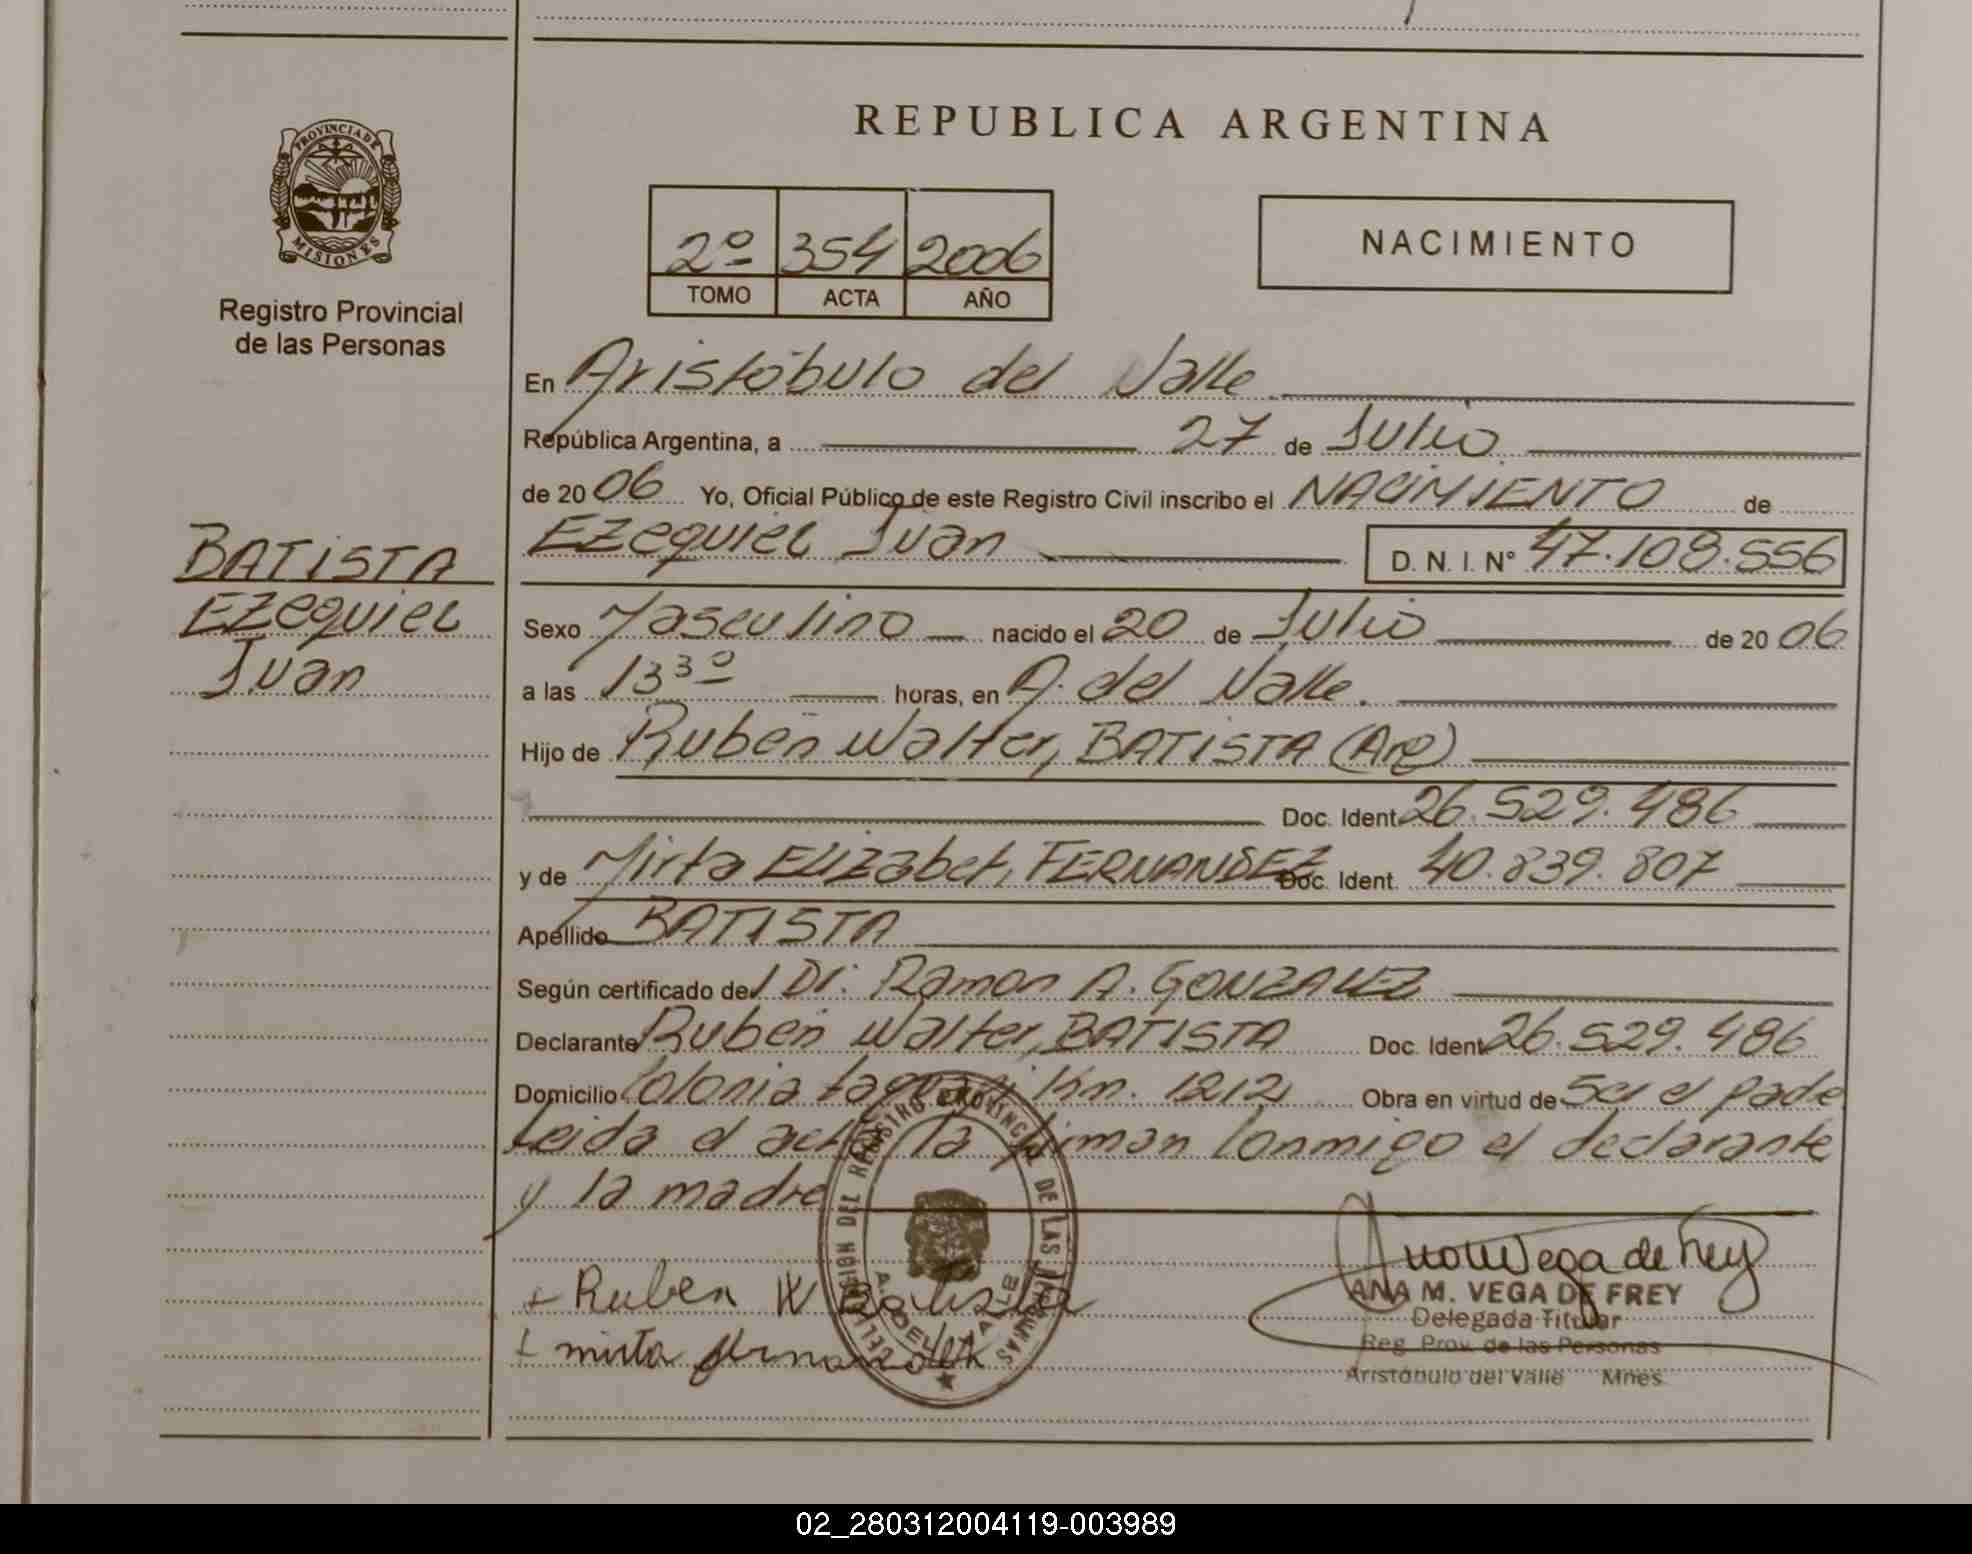 REPUBLICA ARGENTINA
PROVINCIA DE
MISIONES
Registro Provincial
de las Personas
2º 354 2006
TOMO ACTA AÑO
NACIMIENTO
En Aristóbulo del Valle
República Argentina, a 27 de Julio
de 2006 Yo, Oficial Público de este Registro Civil inscribo el NACIMIENTO de
BATISTA
Ezequiel
Juan
Ezequiel Juan D. N. I. Nº 47.108.556
Sexo Masculino nacido el 20 de Julio de 2006
a las 13³⁰ horas, en A. del Valle.
Hijo de Ruben Walter, BATISTA (Arg)
Doc. Ident. 26.529.486
y de Mirta Elizabet, FERNANDEZ Doc. Ident. 40.839.807
Apellido BATISTA
Según certificado del Dr. Ramon A. GONZALEZ
Declarante Ruben Walter, BATISTA Doc. Ident 26.529.486
Domicilio Colonia Km. 1212 Obra en virtud de Ser el padre
Leida el acta la firman Conmigo el declarante
y la madre
+ Ruben W Batista
+ mirta fernandez
DEL REGISTRO PROVINCIAL DE LAS PERSONAS
A. DEL VALLE
Ana M Vega de Frey
ANA M. VEGA DE FREY
Delegada Titular
Reg. Prov. de las Personas
Aristóbulo del Valle Mnes.
02_280312004119-003989